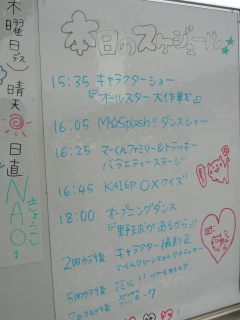 本日のスケジュール
木曜日デス 晴天 日直 NAO!
15:35 キャラクターショー
『オールスター大作戦だ』
16:05 M☆Splash!! ダンスショー
16:25 マーくんファミリー&ドラッキー
バラエティーステージ
16:45 KAIEP ○×クイズ
18:00 オープニングダンス
『野球があるから』
2回ウラ後 キャラクター撮影会
5回ウラ後 花火!!